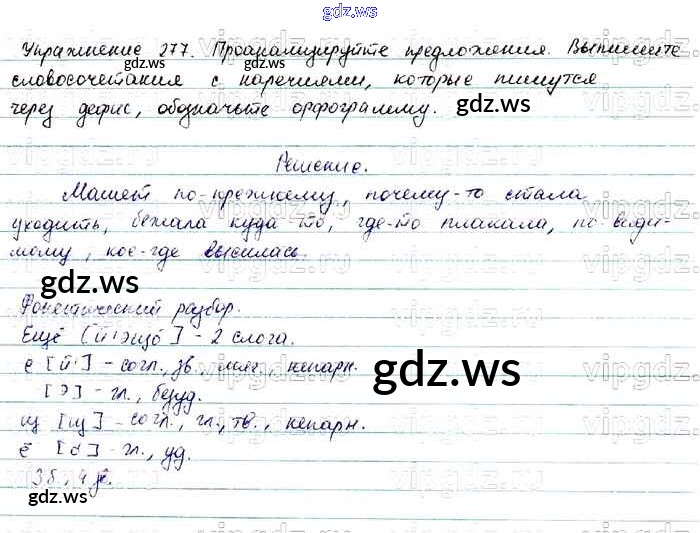 gdz.ws
Упражнение 277. Проанализируйте предложения. Выпишите
словосочетания с наречиями, которые пишутся
через дефис, обозначьте орфограмму.
gdz.ws
gdz.ws
Решение.
Машет по-прежнему, почему-то стала
уходить, бежала куда-то, где-то плакала, по-види-
мому, кое-где высилась.
gdz.ws
gdz.ws
gdz.ws
Фонетический разбор.
Ещё [й'эщо́] - 2 слога.
е [й'] - согл., зв., мяг., непарн.
[э] - гл., безуд.
щ [щ] - согл., гл., тв., непарн.
ё [о́] - гл., уд.
3б., 4
gdz.ws
gdz.ws
gdz.ws
vipgdz.ru